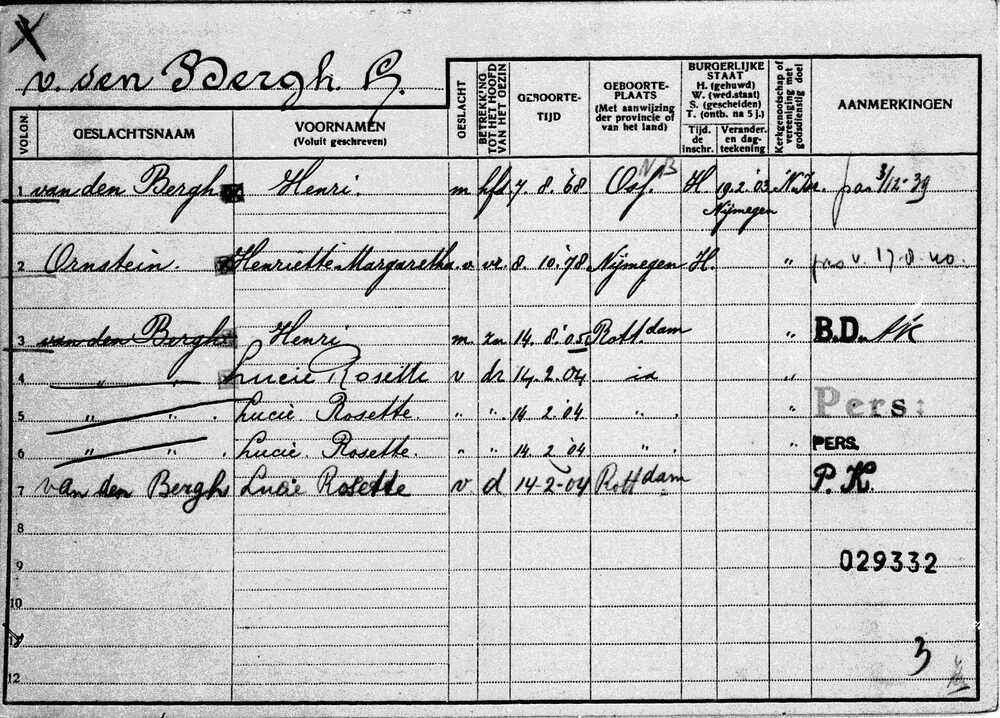 v. den Bergh. H.
VOLGN. GESLACHTSNAAM VOORNAMEN (Voluit geschreven) GESLACHT BETREKK'NG TOT HET HOOFD VAN HET GEZIN GEBOORTE-TIJD GEBOORTE-PLAATS (Met aanwijzing der provincie of van het land) BURGERLIJKE STAAT H. (gehuwd) W. (wed.staat) S. (gescheiden) T. (ontb. na 5 j.) Tijd. de inschr. Verander. en dag-teekening Kerkgenootschap of vereeniging met godsdienstig doel AANMERKINGEN
1 van den Bergh Henri. m hfd 7. 8. '68 Oss. NB H. 19.2.'03 Nijmegen N.Isr. pas 3/12-39
2 Ornstein. Henriette Margaretha v vr. 8. 10. 78 Nijmegen H. " pas v. 17.8.40.
3 van den Bergh Henri m. zn 14. 8. '05 Rott.dam " B.D.
4 " " Lucie Rosette v dr 14. 2. 04 id "
5 " " Lucie Rosette. " " 14. 2 '04 " " Pers:
6 " " Lucie Rosette. " " 14. 2 '04 " " PERS.
7 van den Bergh Lucie Rosette v d 14-2-04 Rottdam P. K.
8
9 029332
10
11
12 3